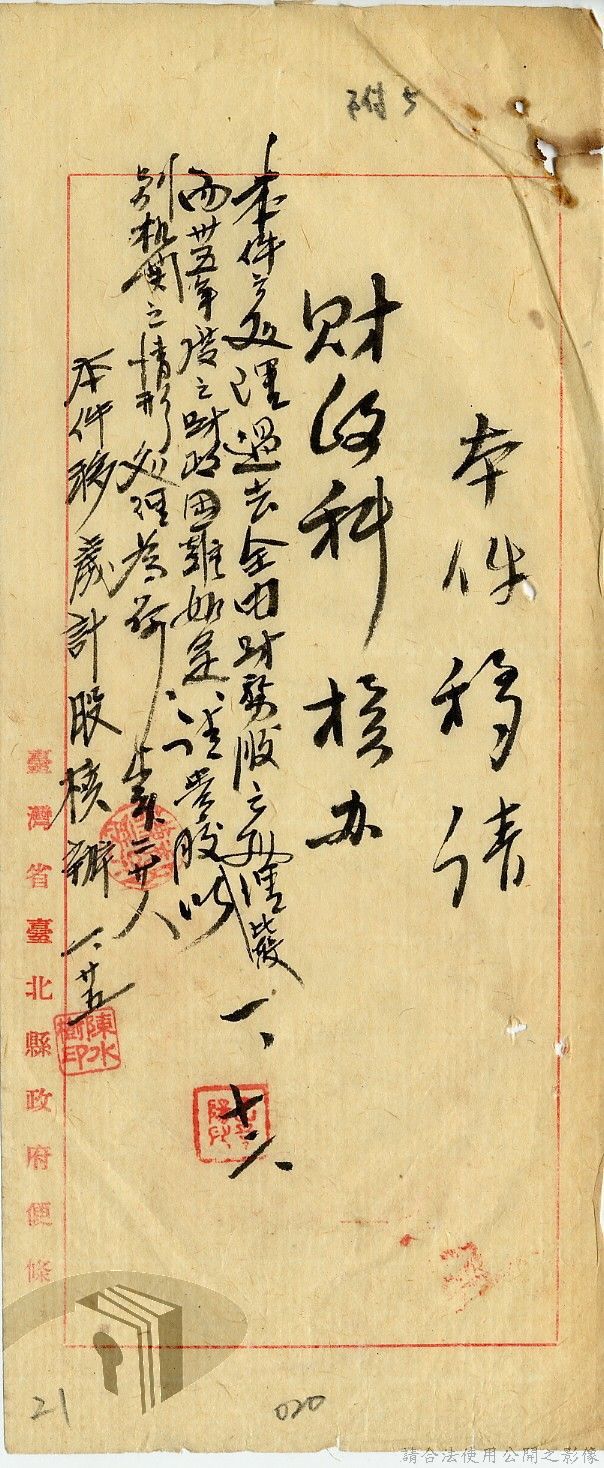 附5
本件移請
財政科核办
一、十六、
本件之处理過去全由財務股之处理
而卅五年度之財政困難如是、請貴股以
別机関之情形处理為荷
本件移歲計股核辦 一、廿五
陳水樹印
臺灣省臺北縣政府便條
21
020
請合法使用公開之影像